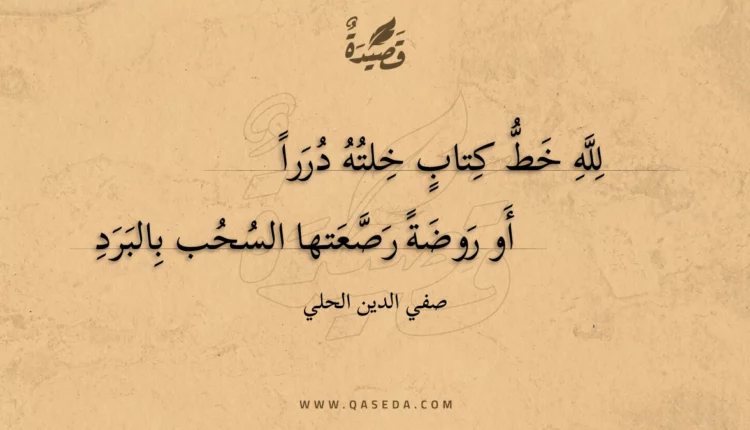 قَصِيدَةٌ
لِلَّهِ خَطُّ كِتابٍ خِلتُهُ دُرَراً
أَو رَوضَةً رَصَّعَتها السُحُب بِالبَرَدِ
صفي الدين الحلي
WWW.QASEDA.COM